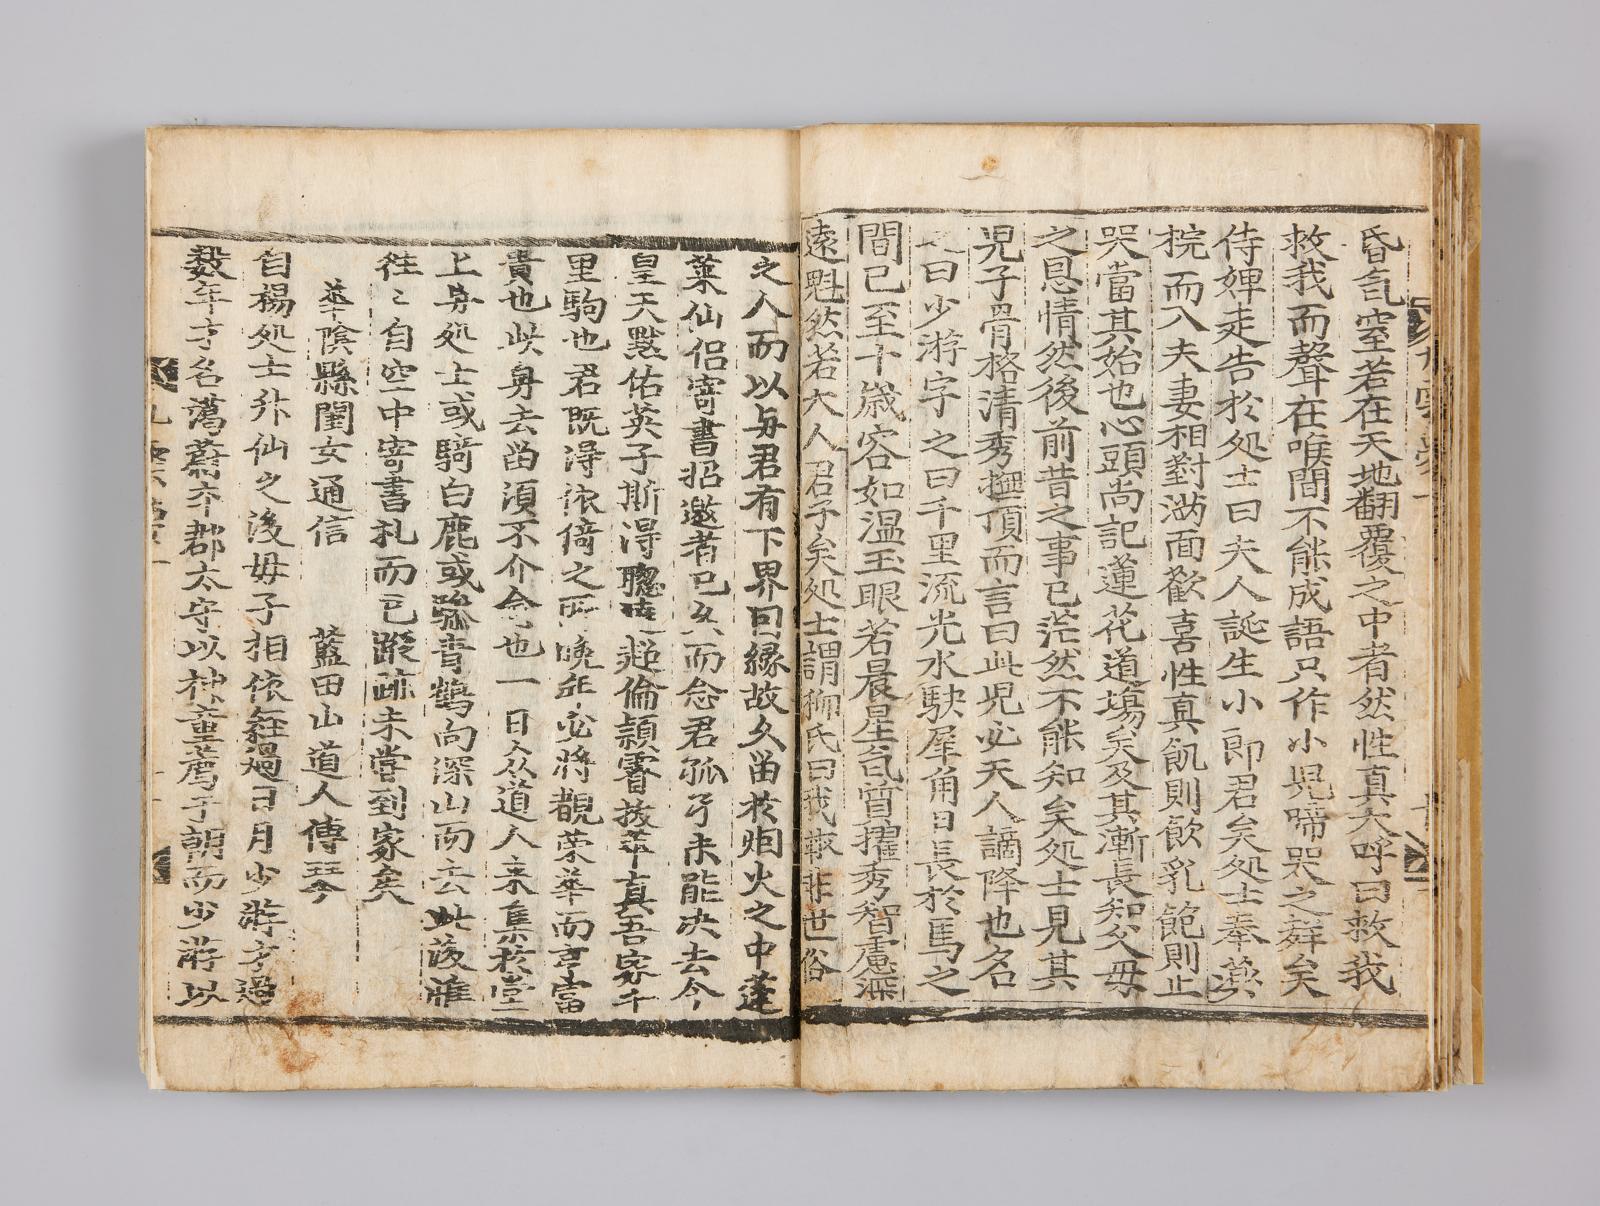 昏氣窒若在天地翻覆之中者然性真大呼曰救我
救我而聲在喉間不能成語只作小児啼哭之聲矣
侍婢走告於処士曰夫人誕生小郎君矣処士奉藥
椀而入夫妻相對滿面歡喜性真飢則飲乳飽則止
哭當其始也心頭尚記蓮花道場矣及其漸長知父母
之恩情然後前昔之事已茫然不能知矣処士見其
児子骨格清秀撫頂而言曰此児必天人謫降也名
之曰少游字之曰千里流光水駃犀角日長於焉之
間已至十歲容如温玉眼若晨星氣質擢秀智慮深
遠魁然若大人君子矣処士謂柳氏曰我本非世俗
之人而以与君有下界因縁故久留於烟火之中蓬
萊仙侣寄書招邀者已久而念君孤孑未能决去今
皇天黙佑英子斯得聰達超倫頴睿拔萃真吾家千
里駒也君既得依倚之所晚年必將覩榮華而享富
貴也此身去留湏不介念也一日众道人来集於堂
上与処士或騎白鹿或驂青鶴向深山而去此後惟
往〻自空中寄書札而已蹤跡未嘗到家矣
華陰縣閨女通信　藍田山道人傳琴
自楊処士升仙之後母子相依經過日月少游才過
數年才名藹蔚本郡太守以神童薦于朝而少游以